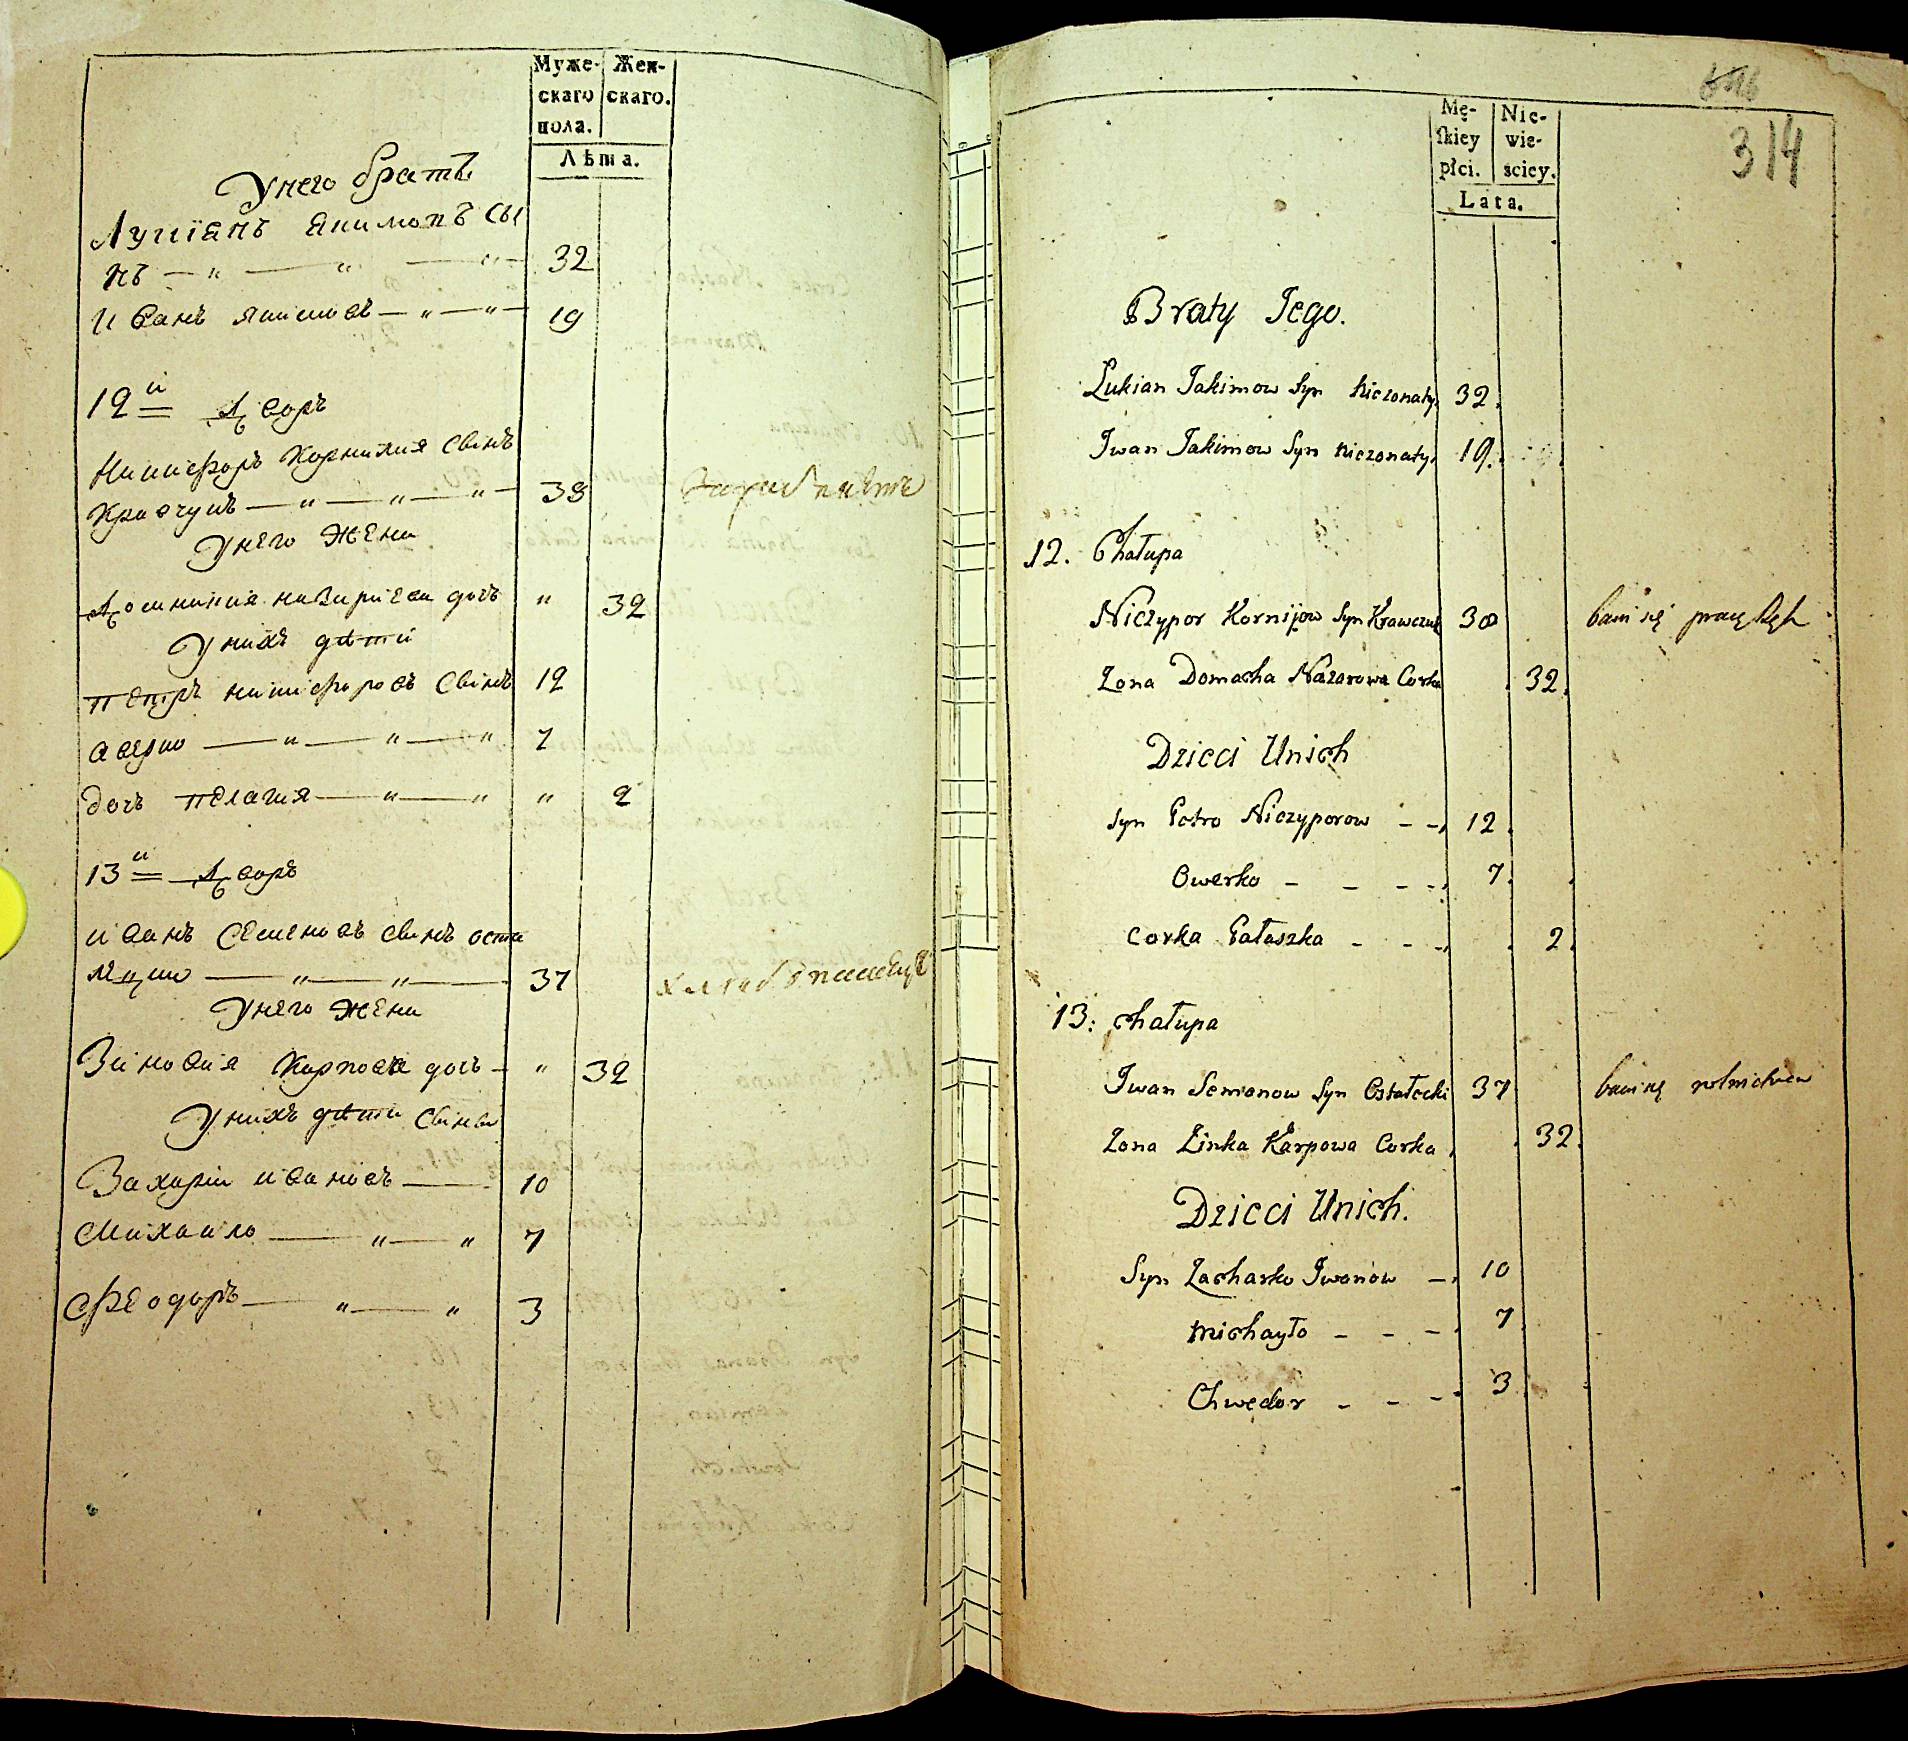 Муже-
скаго
пола.
Жен-
скаго.
Лѣта.
Унего братъ
Лукіянъ Якимовъ сы
нъ — „ — „ — „ — 32
Иванъ Якимовъ — „ — „ — 19
12й Дворъ
Никифоръ Корнилия синъ
Кравчукъ — „ — „ — „ — 38
Унего жена
Домникия Назарѣева дочь „ 32
Унихъ дѣти
Петръ Никифоровъ синъ 12
Аверко — „ — „ — „ 7
дочь Пелагия — „ — „ „ 2
13й Дворъ
Иванъ Семеновъ синъ Оста
лецки — „ — „ — 37
Унего жена
Зиновия Карпова дочь — „ 32
Унихъ дѣти сини
Захарiи Ивановъ — 10
Михаило — „ — „ 7
Феодоръ — „ — „ 3
314
Mę-
skiey
płci.
Nie-
wie-
sciey.
Lata.
Braty Jego.
Lukian Jakimow Syn Niezonaty. 32.
Jwan Jakimow Syn niezonaty. 19.
12. Chałupa
Niczypor Kornijow Syn Krawczuk 38 bawi się pracą Rąk
Zona Domacha Nazarowa Corka 32.
Dzieci Unich
Syn Petro Niczyporow - - 12.
Owerko - - - - 7.
Corka Pałaszka - - - 2.
13: chałupa
Jwan Semenow Syn Ostałecki 37 bawi się rolnictwem
Zona Zinka Karpowa Corka. 32.
Dzieci Unich.
Syn Zacharko Jwanow - 10
Michayło - - - 7
Chwedor - - - 3